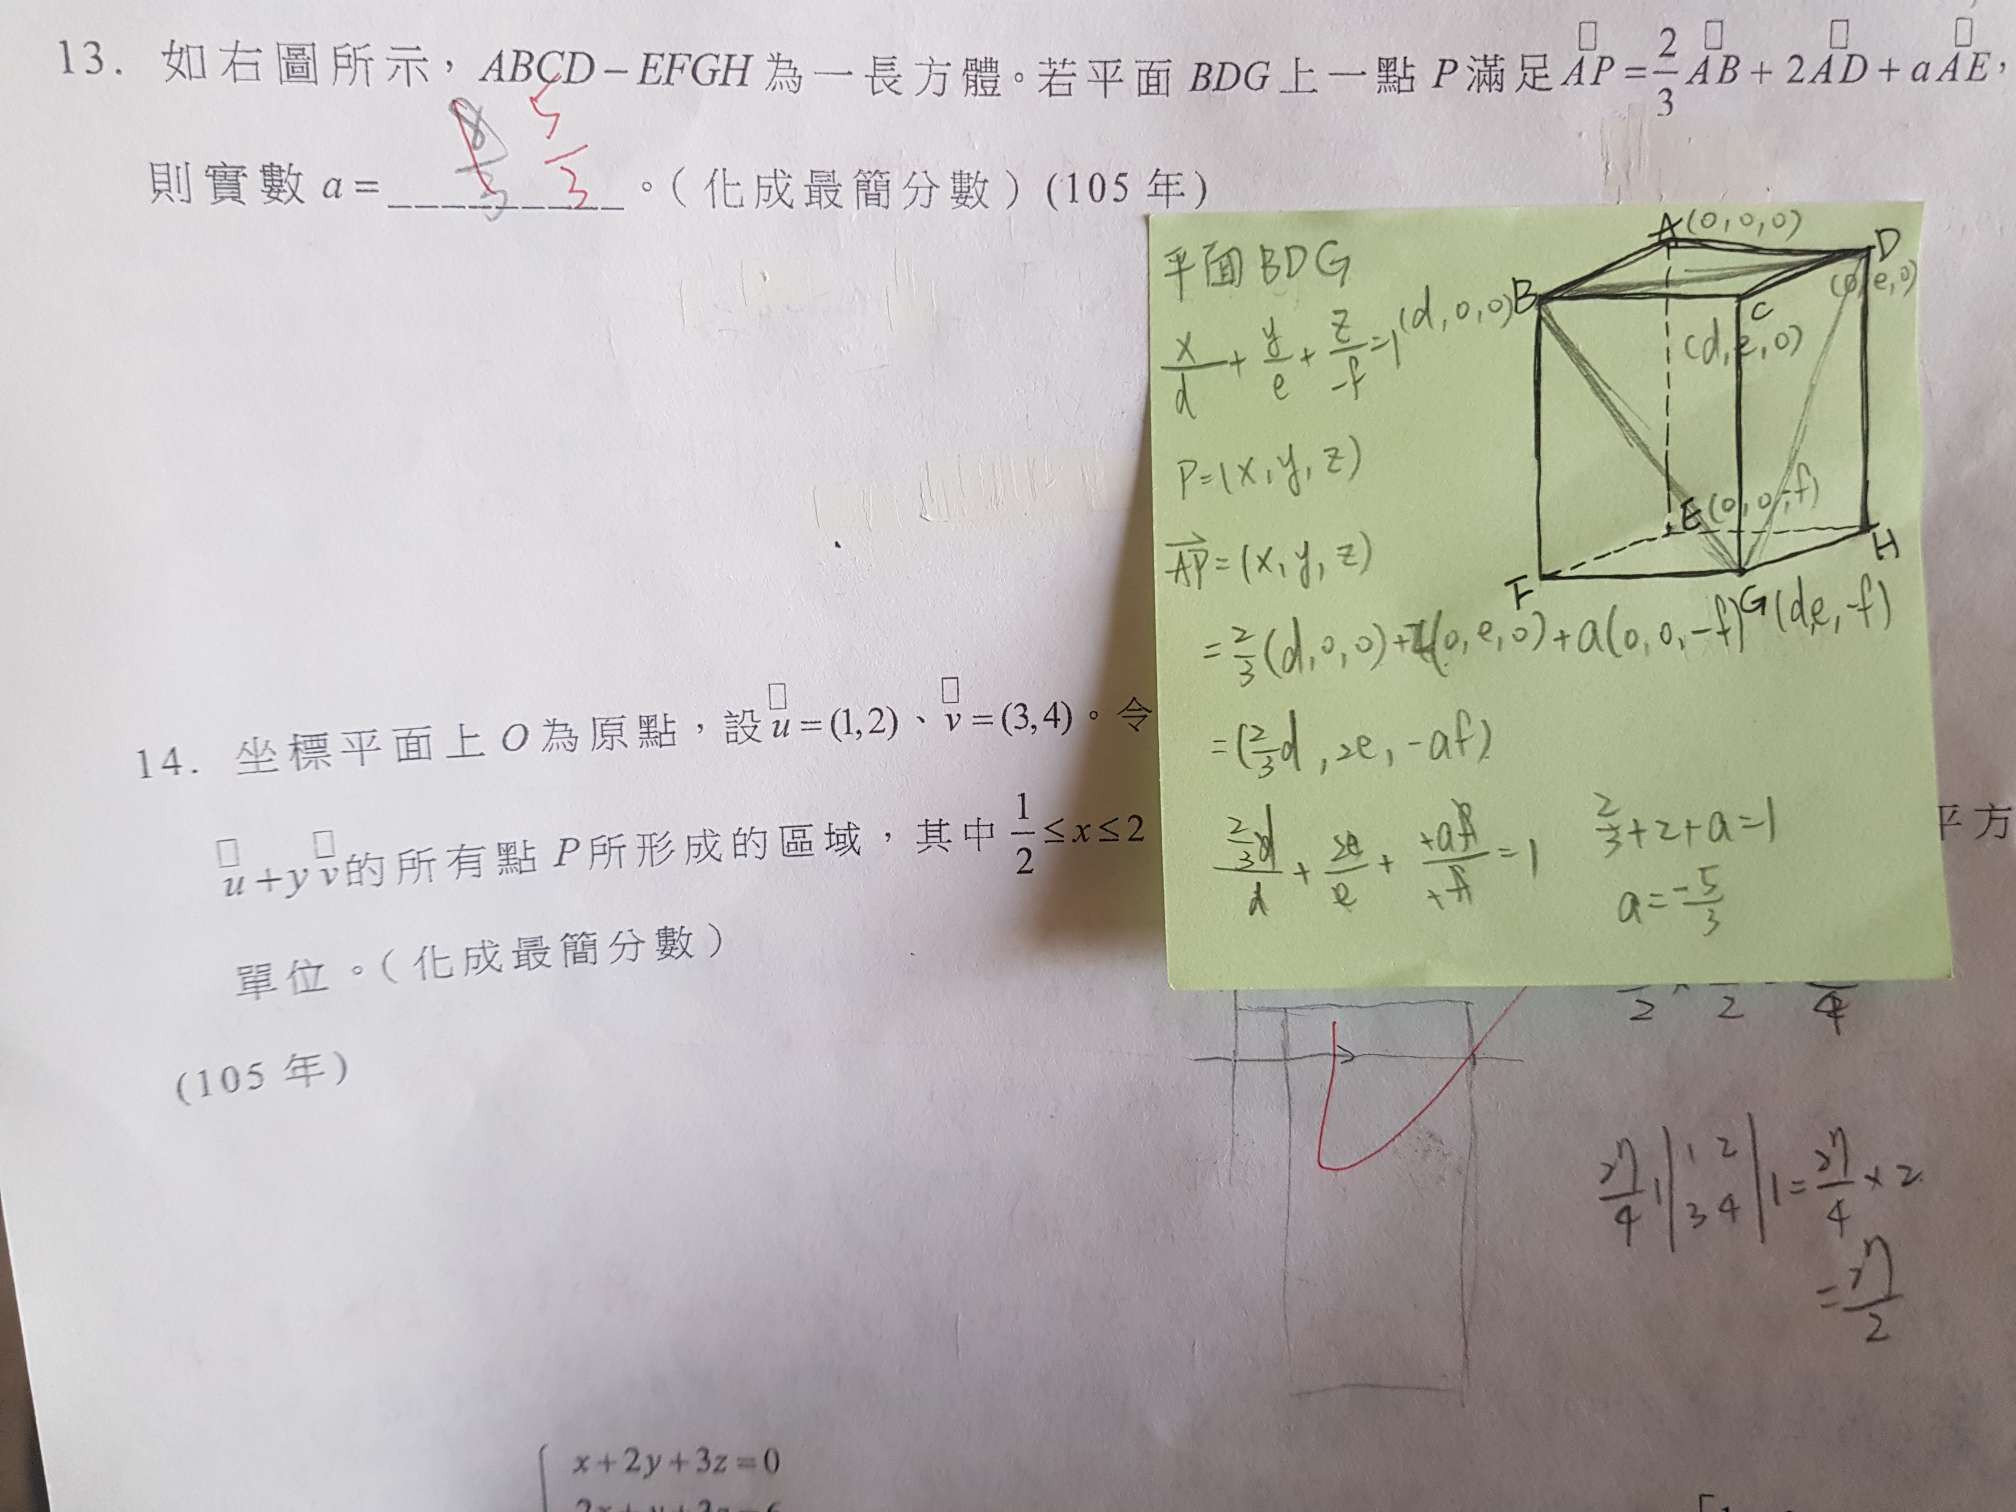 13. 如右圖所示，ABCD－EFGH 為一長方體。若平面 BDG 上一點 P 滿足 AP = 2/3 AB + 2AD + aAE，
則實數 a = _________。(化成最簡分數) (105 年)
8/3 5/3
平面 BDG
x/d + y/e + z/-f = 1
P=(x, y, z)
AP = (x, y, z)
= 2/3(d, 0, 0) + 2(0, e, 0) + a(0, 0, -f)
= (2/3 d, 2e, -af)
2/3 d/d + 2e/e + +af/+f = 1
2/3 + 2 + a = 1
a = -5/3
A(0, 0, 0)
D
(0, e, 0)
B
(d, 0, 0)
C
(d, e, 0)
E(0, 0, -f)
H
F
G(d, e, -f)
14. 坐標平面上 O 為原點，設 u = (1,2)、v = (3,4)。令
u + y v 的所有點 P 所形成的區域，其中 1/2 ≤ x ≤ 2
平方
單位。(化成最簡分數)
(105 年)
2 × 2 4
21/4 | |1 2 3 4| | = 21/4 × 2
= 21/2
x + 2y + 3z = 0